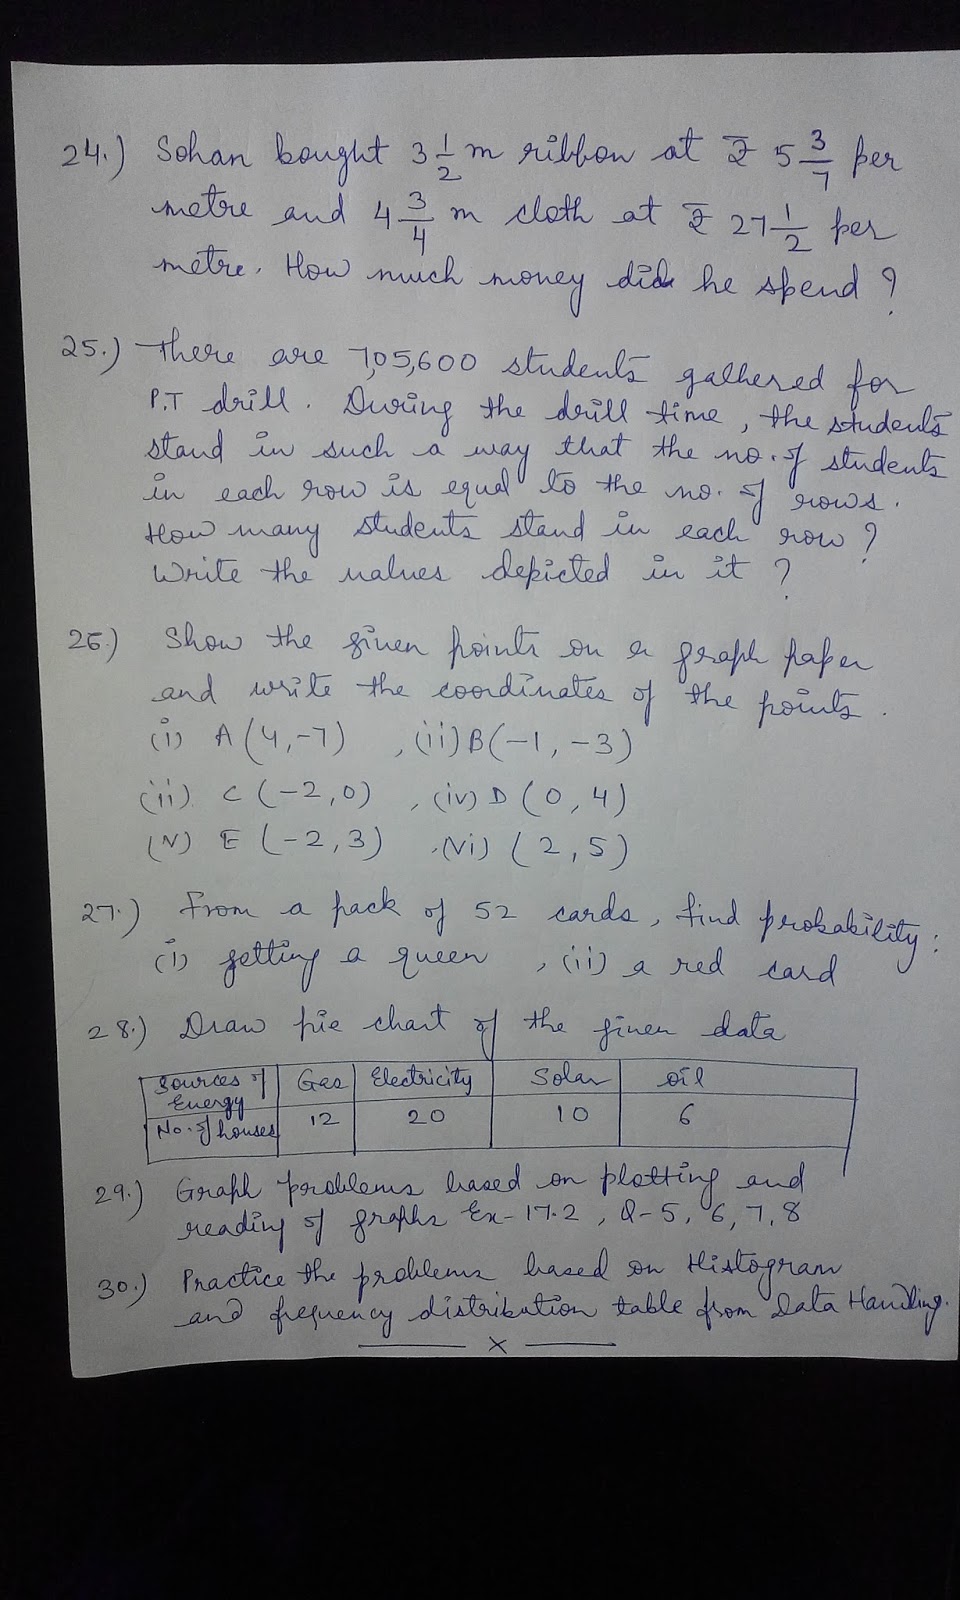 24.) Sohan bought 3 1/2 m ribbon at ₹ 5 3/7 per
metre and 4 3/4 m cloth at ₹ 27 1/2 per
metre. How much money did he spend ?
25.) There are 7,05,600 students gathered for
P.T drill. During the drill time, the students
stand in such a way that the no. of students
in each row is equal to the no. of rows.
How many students stand in each row ?
Write the values depicted in it ?
26.) Show the given points on a graph paper
and write the coordinates of the points.
(i) A (4,-7) , (ii) B(-1, -3)
(iii) C (-2,0) , (iv) D (0, 4)
(V) E (-2,3) , (Vi) (2,5)
27.) From a pack of 52 cards, find probability:
(i) getting a queen , (ii) a red card
28.) Draw pie chart of the given data
Sources of Energy Gas Electricity Solar oil
No. of houses 12 20 10 6
29.) Graph problems based on plotting and
reading of graphs Ex-17.2, Q-5, 6, 7, 8
30.) Practice the problems based on Histogram
and frequency distribution table from Data Handling.
x